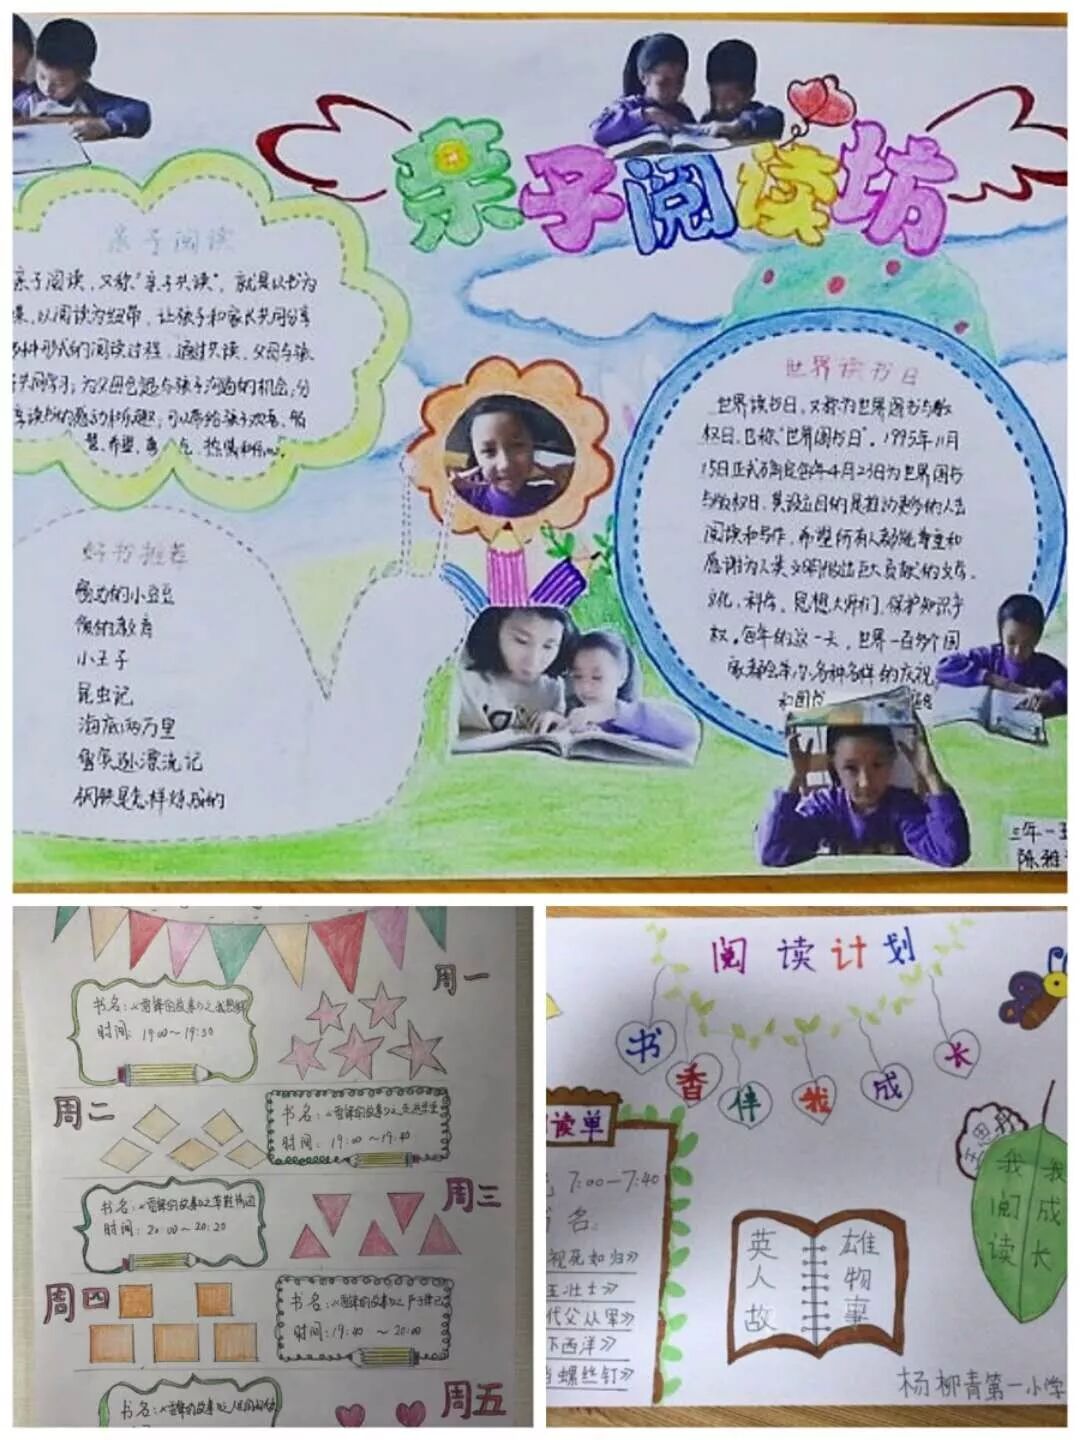 亲子阅读坊
亲子阅读
亲子阅读，又称"亲子共读"，就是以书为
以阅读为纽带，让孩子和家长共同分享
形式的阅读过程，通过共读，父母与孩
共同学习；为父母创造与孩子沟通的机会，分
享读书的感动和乐趣；可以带给孩子欢喜、智
慧、希望、勇
好书推荐
窗边的小豆豆
爱的教育
小王子
昆虫记
海底两万里
鲁滨逊漂流记
钢铁是怎样炼成的
世界读书日
世界读书日，又称为世界图书与版
权日，也称"世界图书日"。1995年11月
15日正式确定每年4月23日为世界图书
与版权日，其设立目的是推动更多的人去
阅读和写作，希望所有人都能尊重和
感谢为人类文明做出巨大贡献的文学、
文化、科学、思想大师们，保护知识产
权。每年的这一天，世界一百多个国
家都会举办各种各样的庆祝
和图书
三年一
陈雅
周一
书名：《雷锋的故事》之
时间：19:00～19:30
周二
书名：《雷锋的故事》之
时间：19:00～19:40
周三
书名：《雷锋的故事》之
时间：20:00～20:20
周四
书名：《雷锋的故事》之严于律己
时间：19:40～20:00
周五
书名：《雷锋的故事》之
阅读计划
书香伴我成长
读单
7:00—7:40
书名
视死如归》
壮士》
代父从军》
下西洋》
螺丝钉》
英雄
人物
故事
我阅读
我成长
杨柳青第一小学